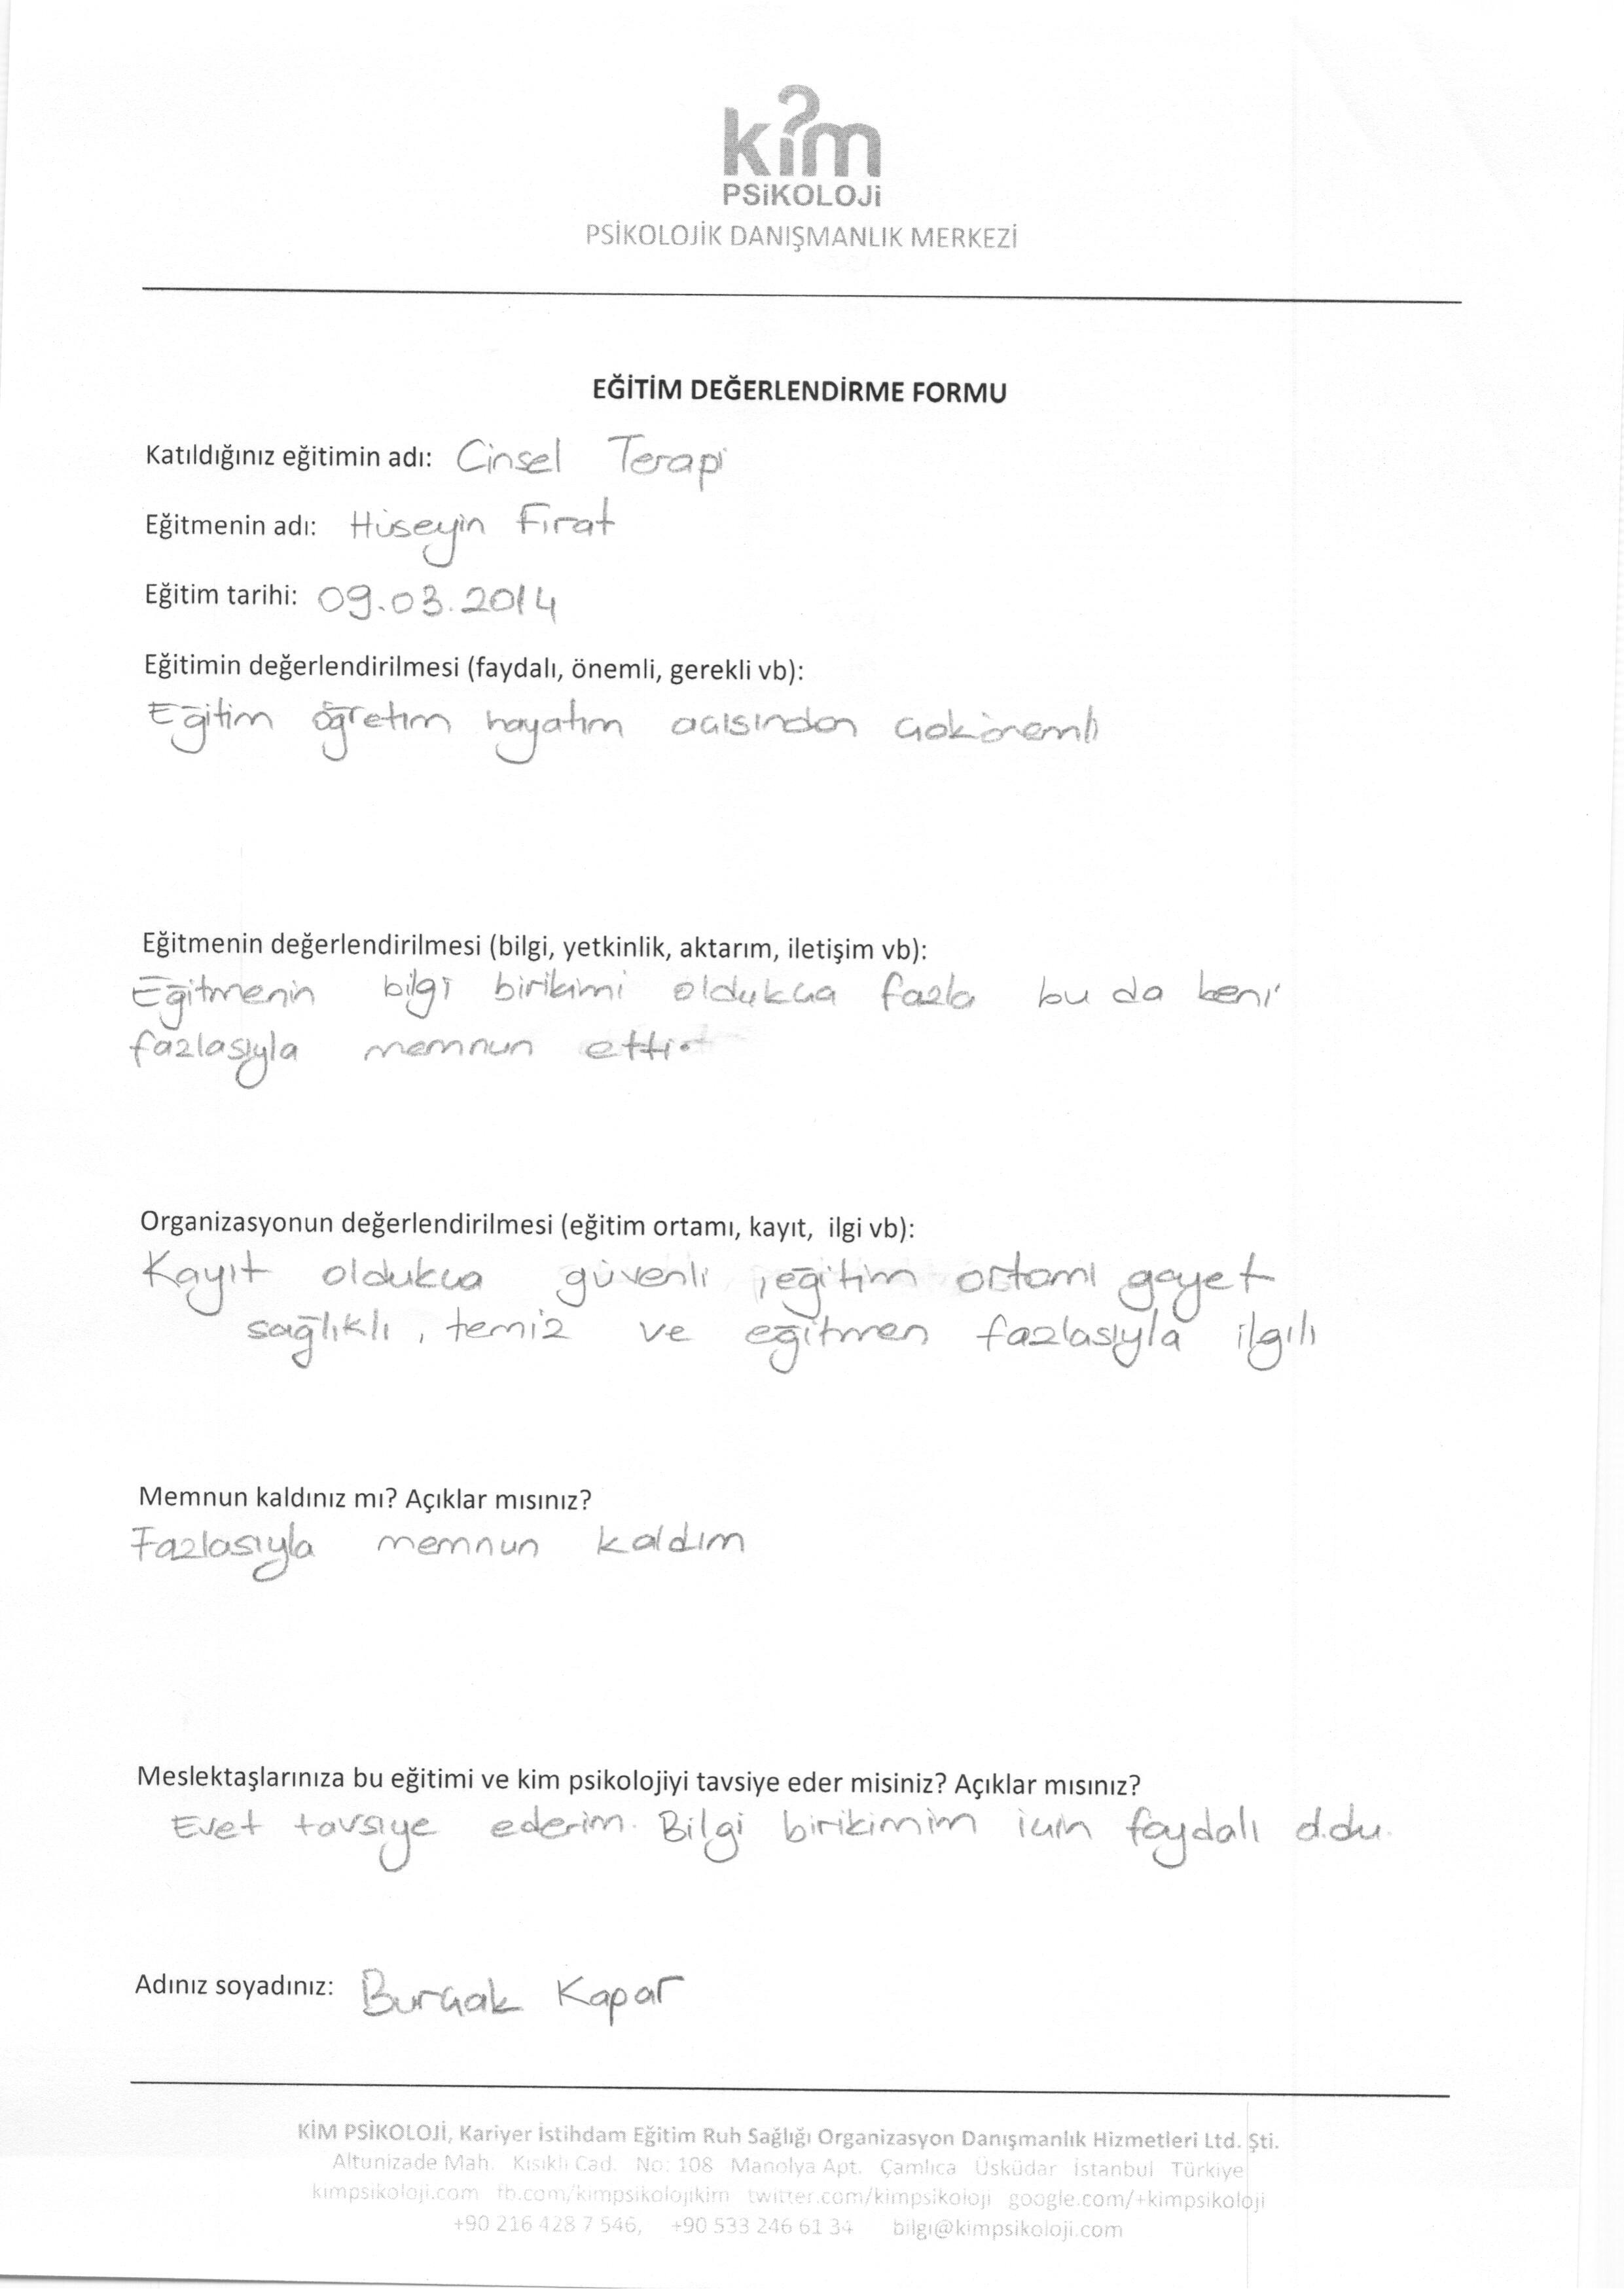 kim
PSiKOLOJi
PSİKOLOJİK DANIŞMANLIK MERKEZİ
EĞİTİM DEĞERLENDİRME FORMU
Katıldığınız eğitimin adı: Cinsel Terapi
Eğitmenin adı: Hüseyin Fırat
Eğitim tarihi: 09.03.2014
Eğitimin değerlendirilmesi (faydalı, önemli, gerekli vb):
Eğitim öğretim hayatım açısından çok önemli
Eğitmenin değerlendirilmesi (bilgi, yetkinlik, aktarım, iletişim vb):
Eğitmenin bilgi birikimi oldukça fazla bu da beni
fazlasıyla memnun etti.
Organizasyonun değerlendirilmesi (eğitim ortamı, kayıt, ilgi vb):
Kayıt oldukça güvenli, eğitim ortamı gayet
sağlıklı, temiz ve eğitmen fazlasıyla ilgili
Memnun kaldınız mı? Açıklar mısınız?
Fazlasıyla memnun kaldım
Meslektaşlarınıza bu eğitimi ve kim psikolojiyi tavsiye eder misiniz? Açıklar mısınız?
Evet tavsiye ederim. Bilgi birikimim için faydalı oldu.
Adınız soyadınız: Burçak Kapar
KİM PSİKOLOJİ, Kariyer İstihdam Eğitim Ruh Sağlığı Organizasyon Danışmanlık Hizmetleri Ltd. Şti.
Altunizade Mah. Kısıklı Cad. No: 108 Manolya Apt. Çamlıca Üsküdar İstanbul Türkiye
kimpsikoloji.com fb.com/kimpsikolojikim twitter.com/kimpsikoloji google.com/+kimpsikoloji
+90 216 428 7 546, +90 533 246 61 34 bilgi@kimpsikoloji.com